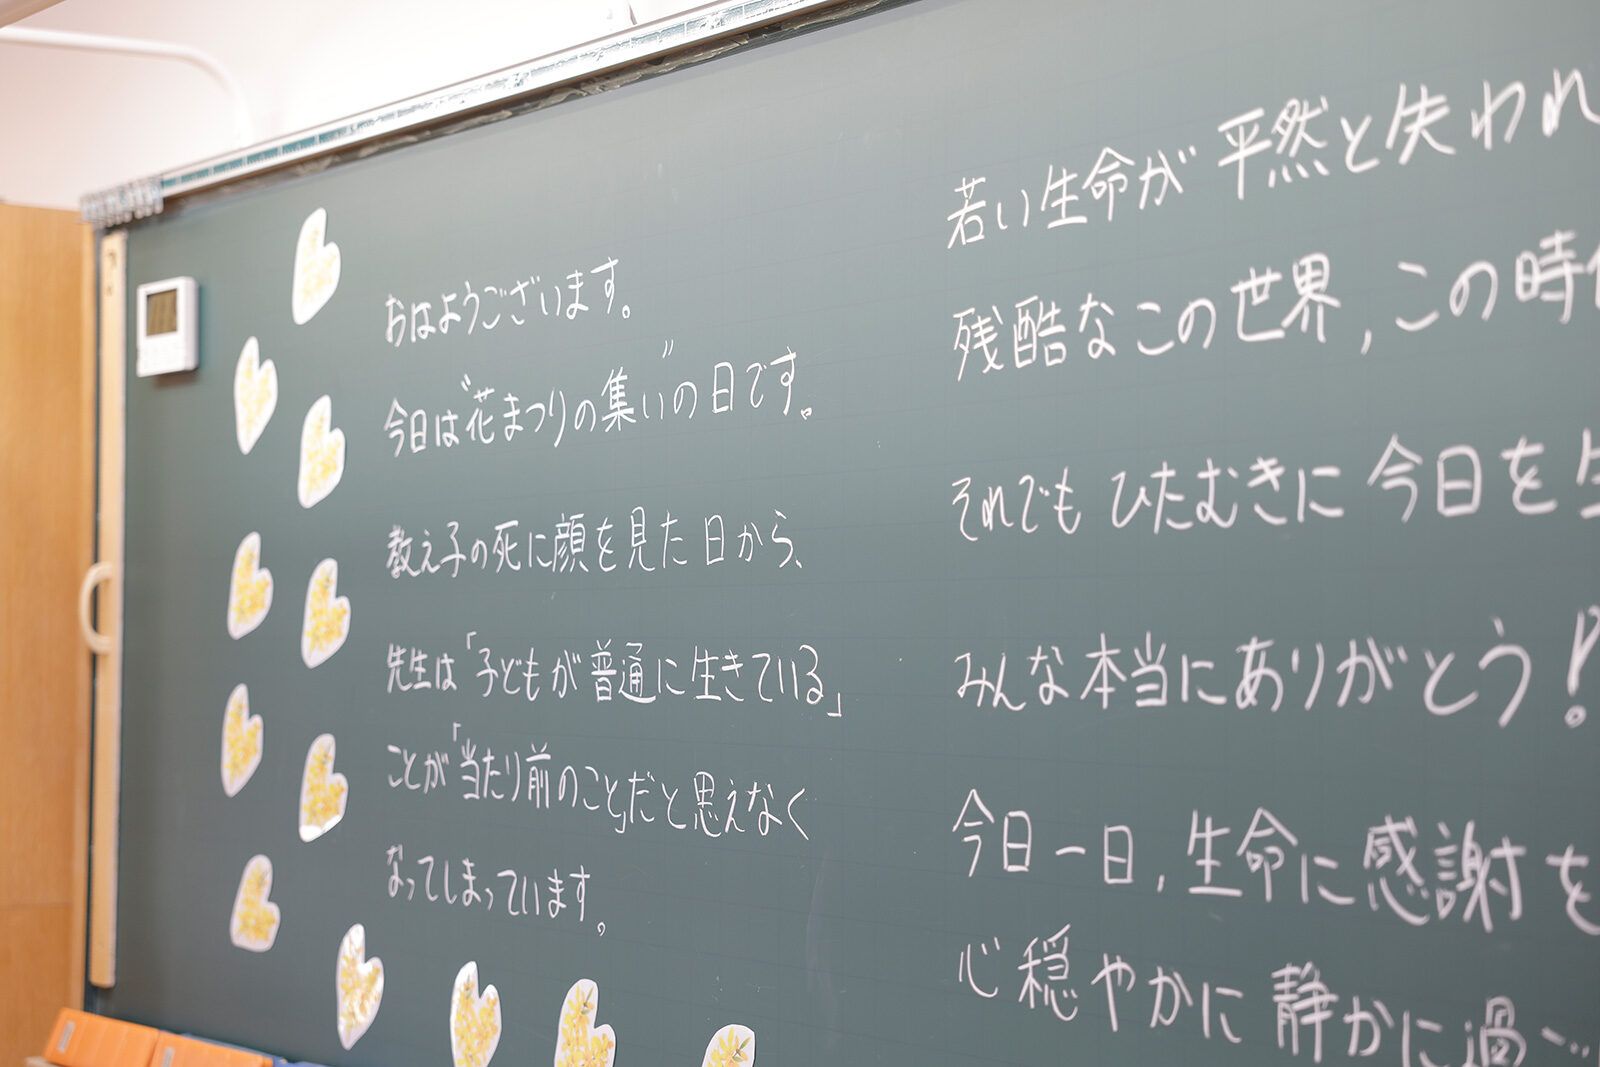 おはようございます。
今日は"花まつりの集い"の日です。
教え子の死に顔を見た日から、
先生は「子どもが普通に生きている」
ことが「当たり前のこと」だと思えなく
なってしまっています。
若い生命が平然と失われ
残酷なこの世界,この時
それでもひたむきに今日を生
みんな本当にありがとう!
今日一日,生命に感謝を
心穏やかに静かに過